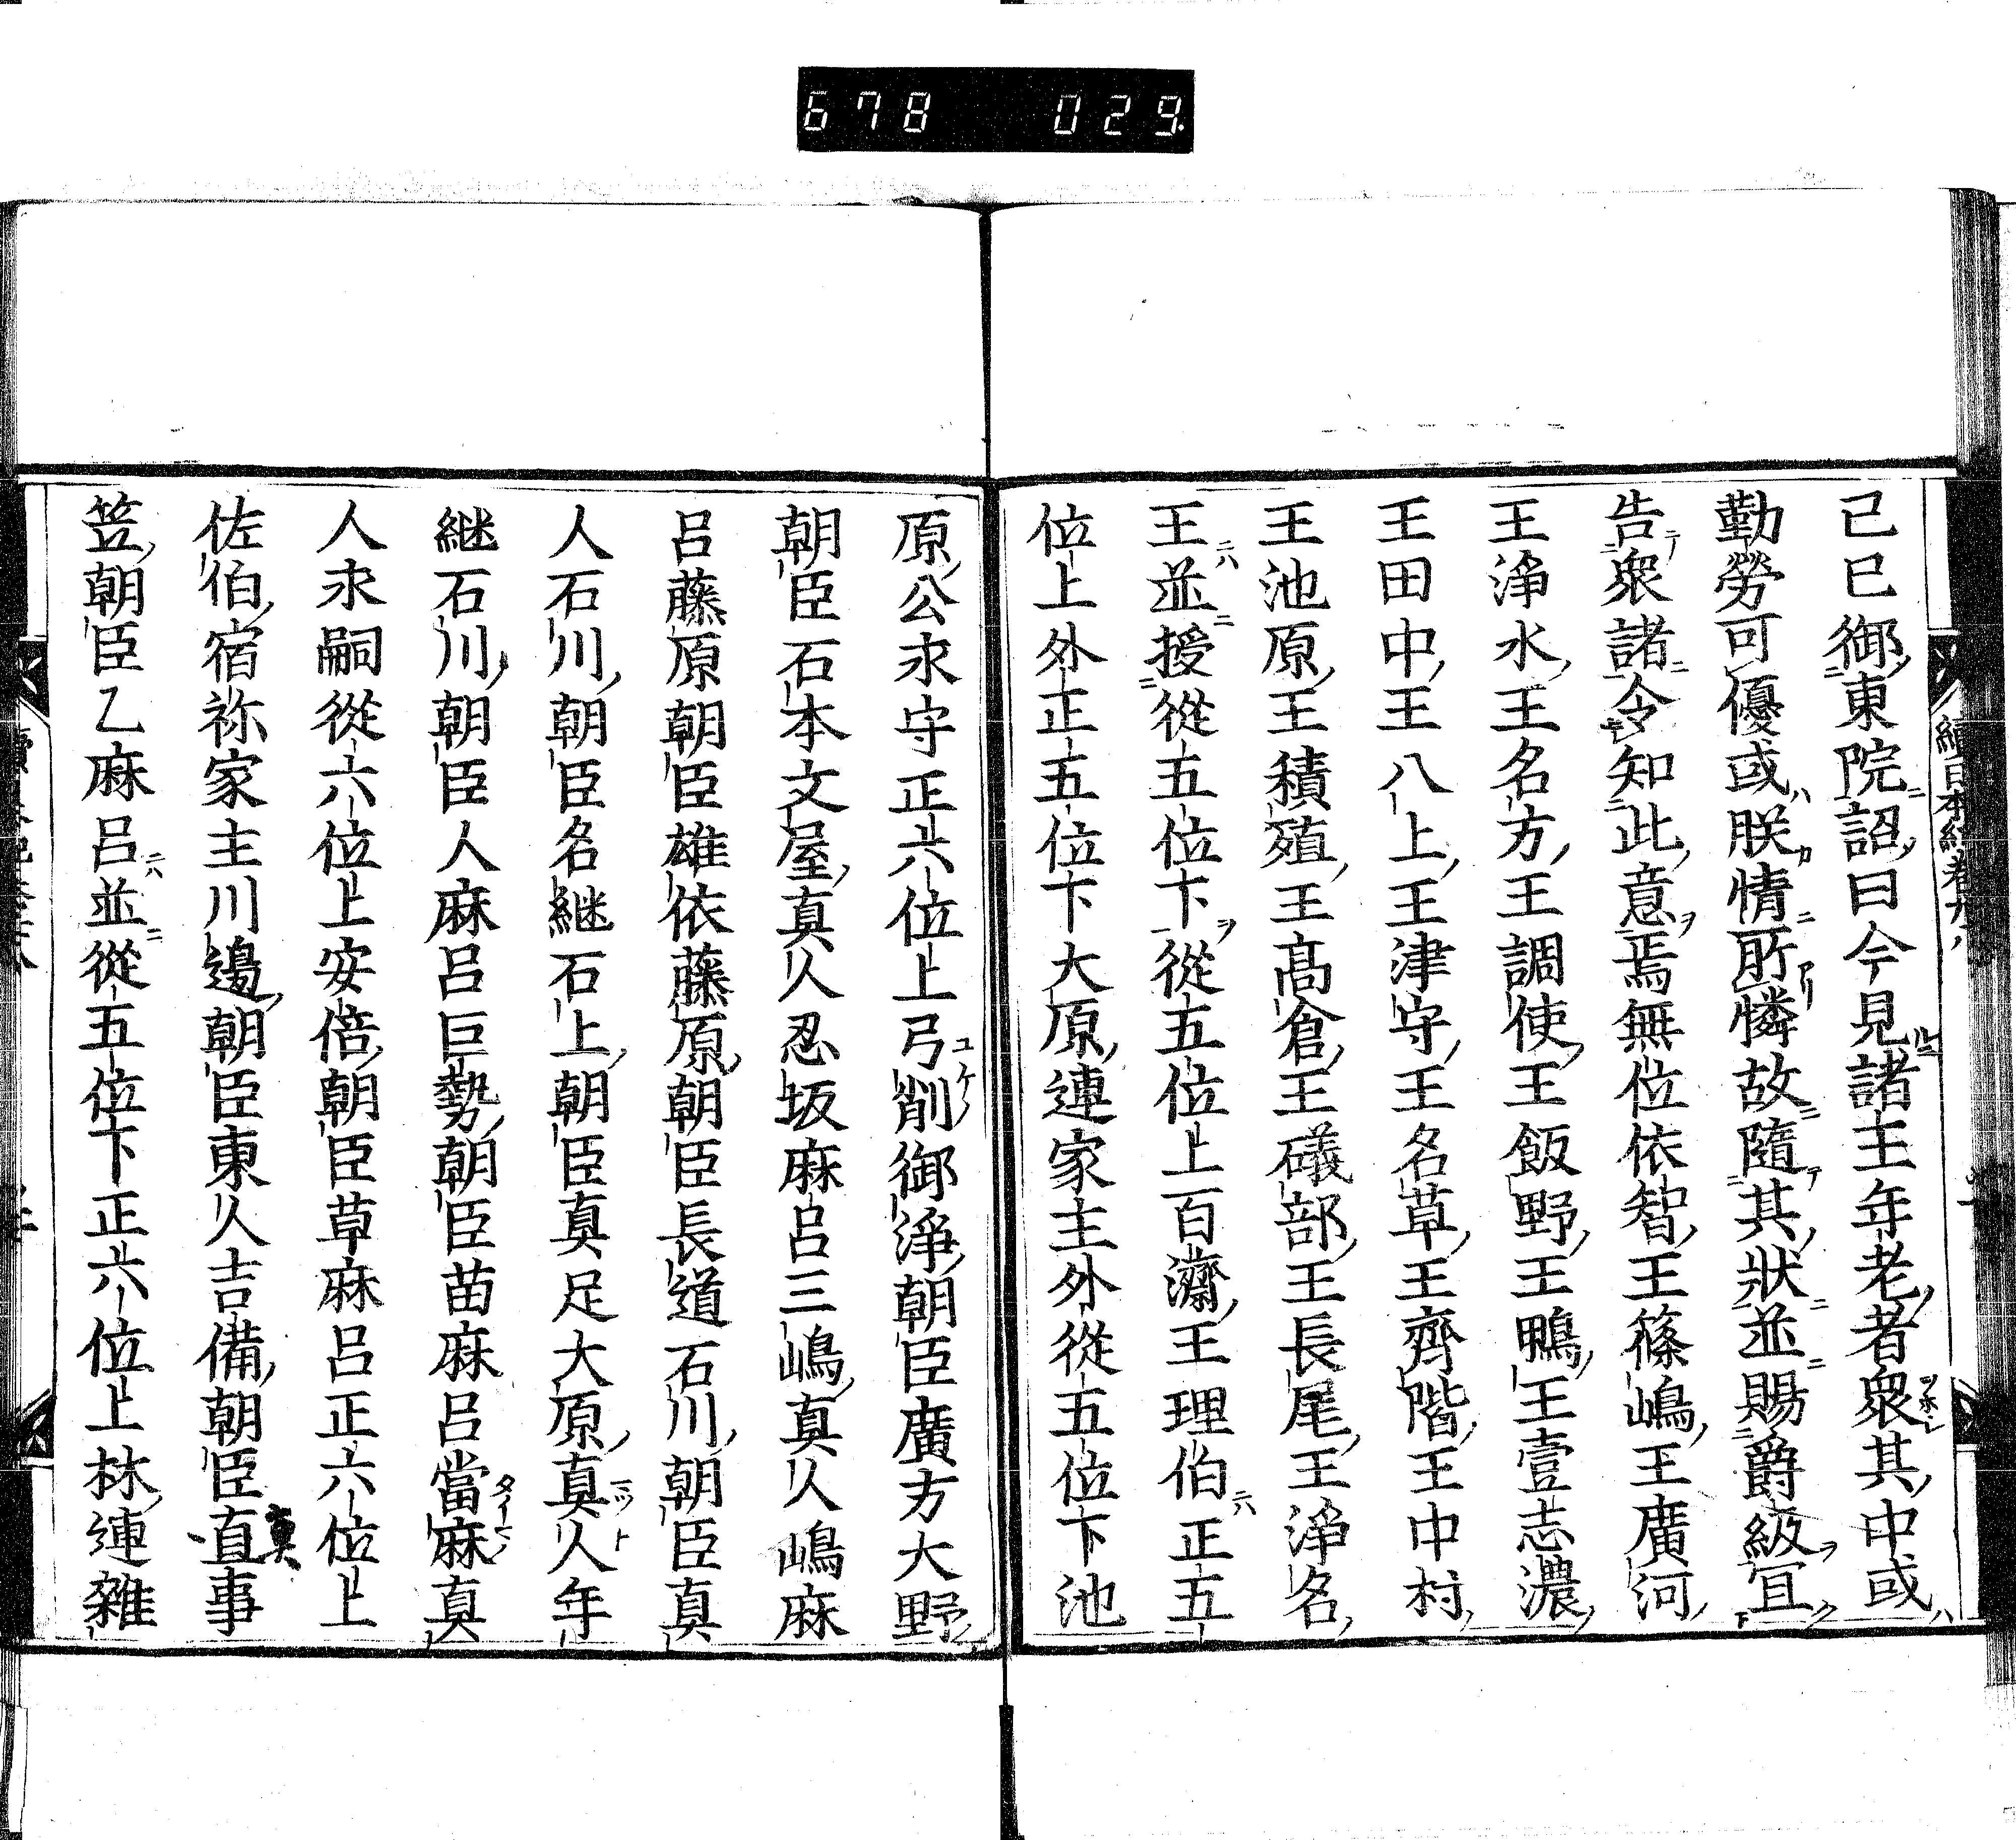 678 029
己巳御東院詔曰今見諸王年老者衆其中或
勤勞可優或朕情所憐故隨其狀並賜爵級宜
告衆諸令知此意焉無位依智王篠嶋王廣河
王淨水王名方王調使王飯野王鴨王壹志濃
王田中王八上王津守王名草王齊階王中村
王池原王積殖王髙倉王礒部王長尾王淨名
王並授從五位下從五位上百濟王理伯正五
位上外正五位下大原連家主外從五位下池
原公氷守正六位上弓削御淨朝臣廣方大野
朝臣石本文屋真人忍坂麻呂三嶋真人嶋麻
呂藤原朝臣雄依藤原朝臣長道石川朝臣真
人石川朝臣名継石上朝臣真足大原真人年
継石川朝臣人麻呂巨勢朝臣苗麻呂當麻真
人永嗣從六位上安倍朝臣草麻呂正六位上
佐伯宿祢家主川邊朝臣東人吉備朝臣直事
真
笠朝臣乙麻呂並從五位下正六位上林連雜